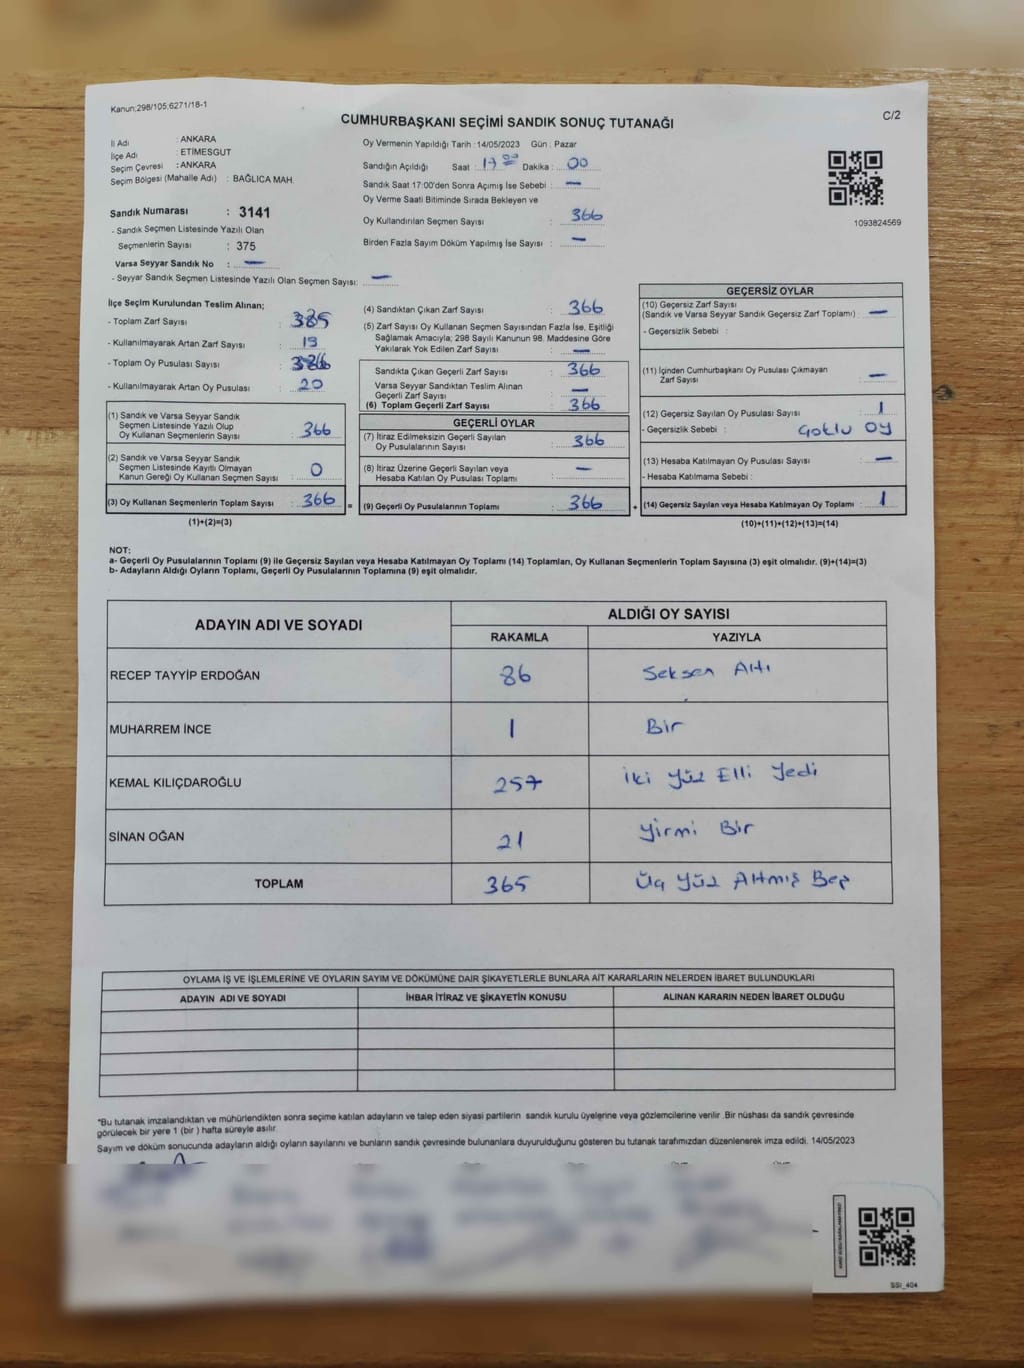 Kanun;298/105;6271/18-1
C/2
CUMHURBAŞKANI SEÇİMİ SANDIK SONUÇ TUTANAĞI
İl Adı : ANKARA
İlçe Adı : ETİMESGUT
Seçim Çevresi : ANKARA
Seçim Bölgesi (Mahalle Adı) : BAĞLICA MAH.
Sandık Numarası : 3141
- Sandık Seçmen Listesinde Yazılı Olan
Seçmenlerin Sayısı : 375
Varsa Seyyar Sandık No : —
- Seyyar Sandık Seçmen Listesinde Yazılı Olan Seçmen Sayısı: —
Oy Vermenin Yapıldığı Tarih : 14/05/2023 Gün : Pazar
Sandığın Açıldığı Saat : 17 00 Dakika : 00
Sandık Saat 17:00'den Sonra Açımış İse Sebebi : —
Oy Verme Saati Bitiminde Sırada Bekleyen ve
Oy Kullandırılan Seçmen Sayısı : 366
Birden Fazla Sayım Döküm Yapılmış İse Sayısı : —
1093824569
İlçe Seçim Kurulundan Teslim Alınan;
- Toplam Zarf Sayısı : 385
- Kullanılmayarak Artan Zarf Sayısı : 19
- Toplam Oy Pusulası Sayısı : 386
- Kullanılmayarak Artan Oy Pusulası : 20
(1) Sandık ve Varsa Seyyar Sandık
Seçmen Listesinde Yazılı Olup
Oy Kullanan Seçmenlerin Sayısı : 366
(2) Sandık ve Varsa Seyyar Sandık
Seçmen Listesinde Kayıtlı Olmayan
Kanun Gereği Oy Kullanan Seçmen Sayısı : 0
(3) Oy Kullanan Seçmenlerin Toplam Sayısı : 366
(1)+(2)=(3)
(4) Sandıktan Çıkan Zarf Sayısı : 366
(5) Zarf Sayısı Oy Kullanan Seçmen Sayısından Fazla İse, Eşitliği
Sağlamak Amacıyla; 298 Sayılı Kanunun 98. Maddesine Göre
Yakılarak Yok Edilen Zarf Sayısı : —
Sandıkta Çıkan Geçerli Zarf Sayısı : 366
Varsa Seyyar Sandıktan Teslim Alınan
Geçerli Zarf Sayısı : —
(6) Toplam Geçerli Zarf Sayısı : 366
GEÇERLİ OYLAR
(7) İtiraz Edilmeksizin Geçerli Sayılan
Oy Pusulalarının Sayısı : 366
(8) İtiraz Üzerine Geçerli Sayılan veya
Hesaba Katılan Oy Pusulası Toplamı : —
= (9) Geçerli Oy Pusulalarının Toplamı : 366
GEÇERSİZ OYLAR
(10) Geçersiz Zarf Sayısı
(Sandık ve Varsa Seyyar Sandık Geçersiz Zarf Toplamı) : —
- Geçersizlik Sebebi :
(11) İçinden Cumhurbaşkanı Oy Pusulası Çıkmayan
Zarf Sayısı : —
(12) Geçersiz Sayılan Oy Pusulası Sayısı : 1
- Geçersizlik Sebebi : Çoklu OY
(13) Hesaba Katılmayan Oy Pusulası Sayısı : —
- Hesaba Katılmama Sebebi :
+ (14) Geçersiz Sayılan veya Hesaba Katılmayan Oy Toplamı : 1
(10)+(11)+(12)+(13)=(14)
NOT:
a- Geçerli Oy Pusulalarının Toplamı (9) ile Geçersiz Sayılan veya Hesaba Katılmayan Oy Toplamı (14) Toplamları, Oy Kullanan Seçmenlerin Toplam Sayısına (3) eşit olmalıdır. (9)+(14)=(3)
b- Adayların Aldığı Oyların Toplamı, Geçerli Oy Pusulalarının Toplamına (9) eşit olmalıdır.
ADAYIN ADI VE SOYADI ALDIĞI OY SAYISI
RAKAMLA YAZIYLA
RECEP TAYYİP ERDOĞAN 86 Seksen Altı
MUHARREM İNCE 1 Bir
KEMAL KILIÇDAROĞLU 257 İki Yüz Elli Yedi
SİNAN OĞAN 21 Yirmi Bir
TOPLAM 365 Üç Yüz Altmış Beş
OYLAMA İŞ VE İŞLEMLERİNE VE OYLARIN SAYIM VE DÖKÜMÜNE DAİR ŞİKAYETLERLE BUNLARA AİT KARARLARIN NELERDEN İBARET BULUNDUKLARI
ADAYIN ADI VE SOYADI İHBAR İTİRAZ VE ŞİKAYETİN KONUSU ALINAN KARARIN NEDEN İBARET OLDUĞU
*Bu tutanak imzalandıktan ve mühürlendikten sonra seçime katılan adayların ve talep eden siyasi partilerin sandık kurulu üyelerine veya gözlemcilerine verilir .Bir nüshası da sandık çevresinde
görülecek bir yere 1 (bir ) hafta süreyle asılır.
Sayım ve döküm sonucunda adayların aldığı oyların sayılarını ve bunların sandık çevresinde bulunanlara duyurulduğunu gösteren bu tutanak tarafımızdan düzenlenerek imza edildi. 14/05/2023
SSI_404